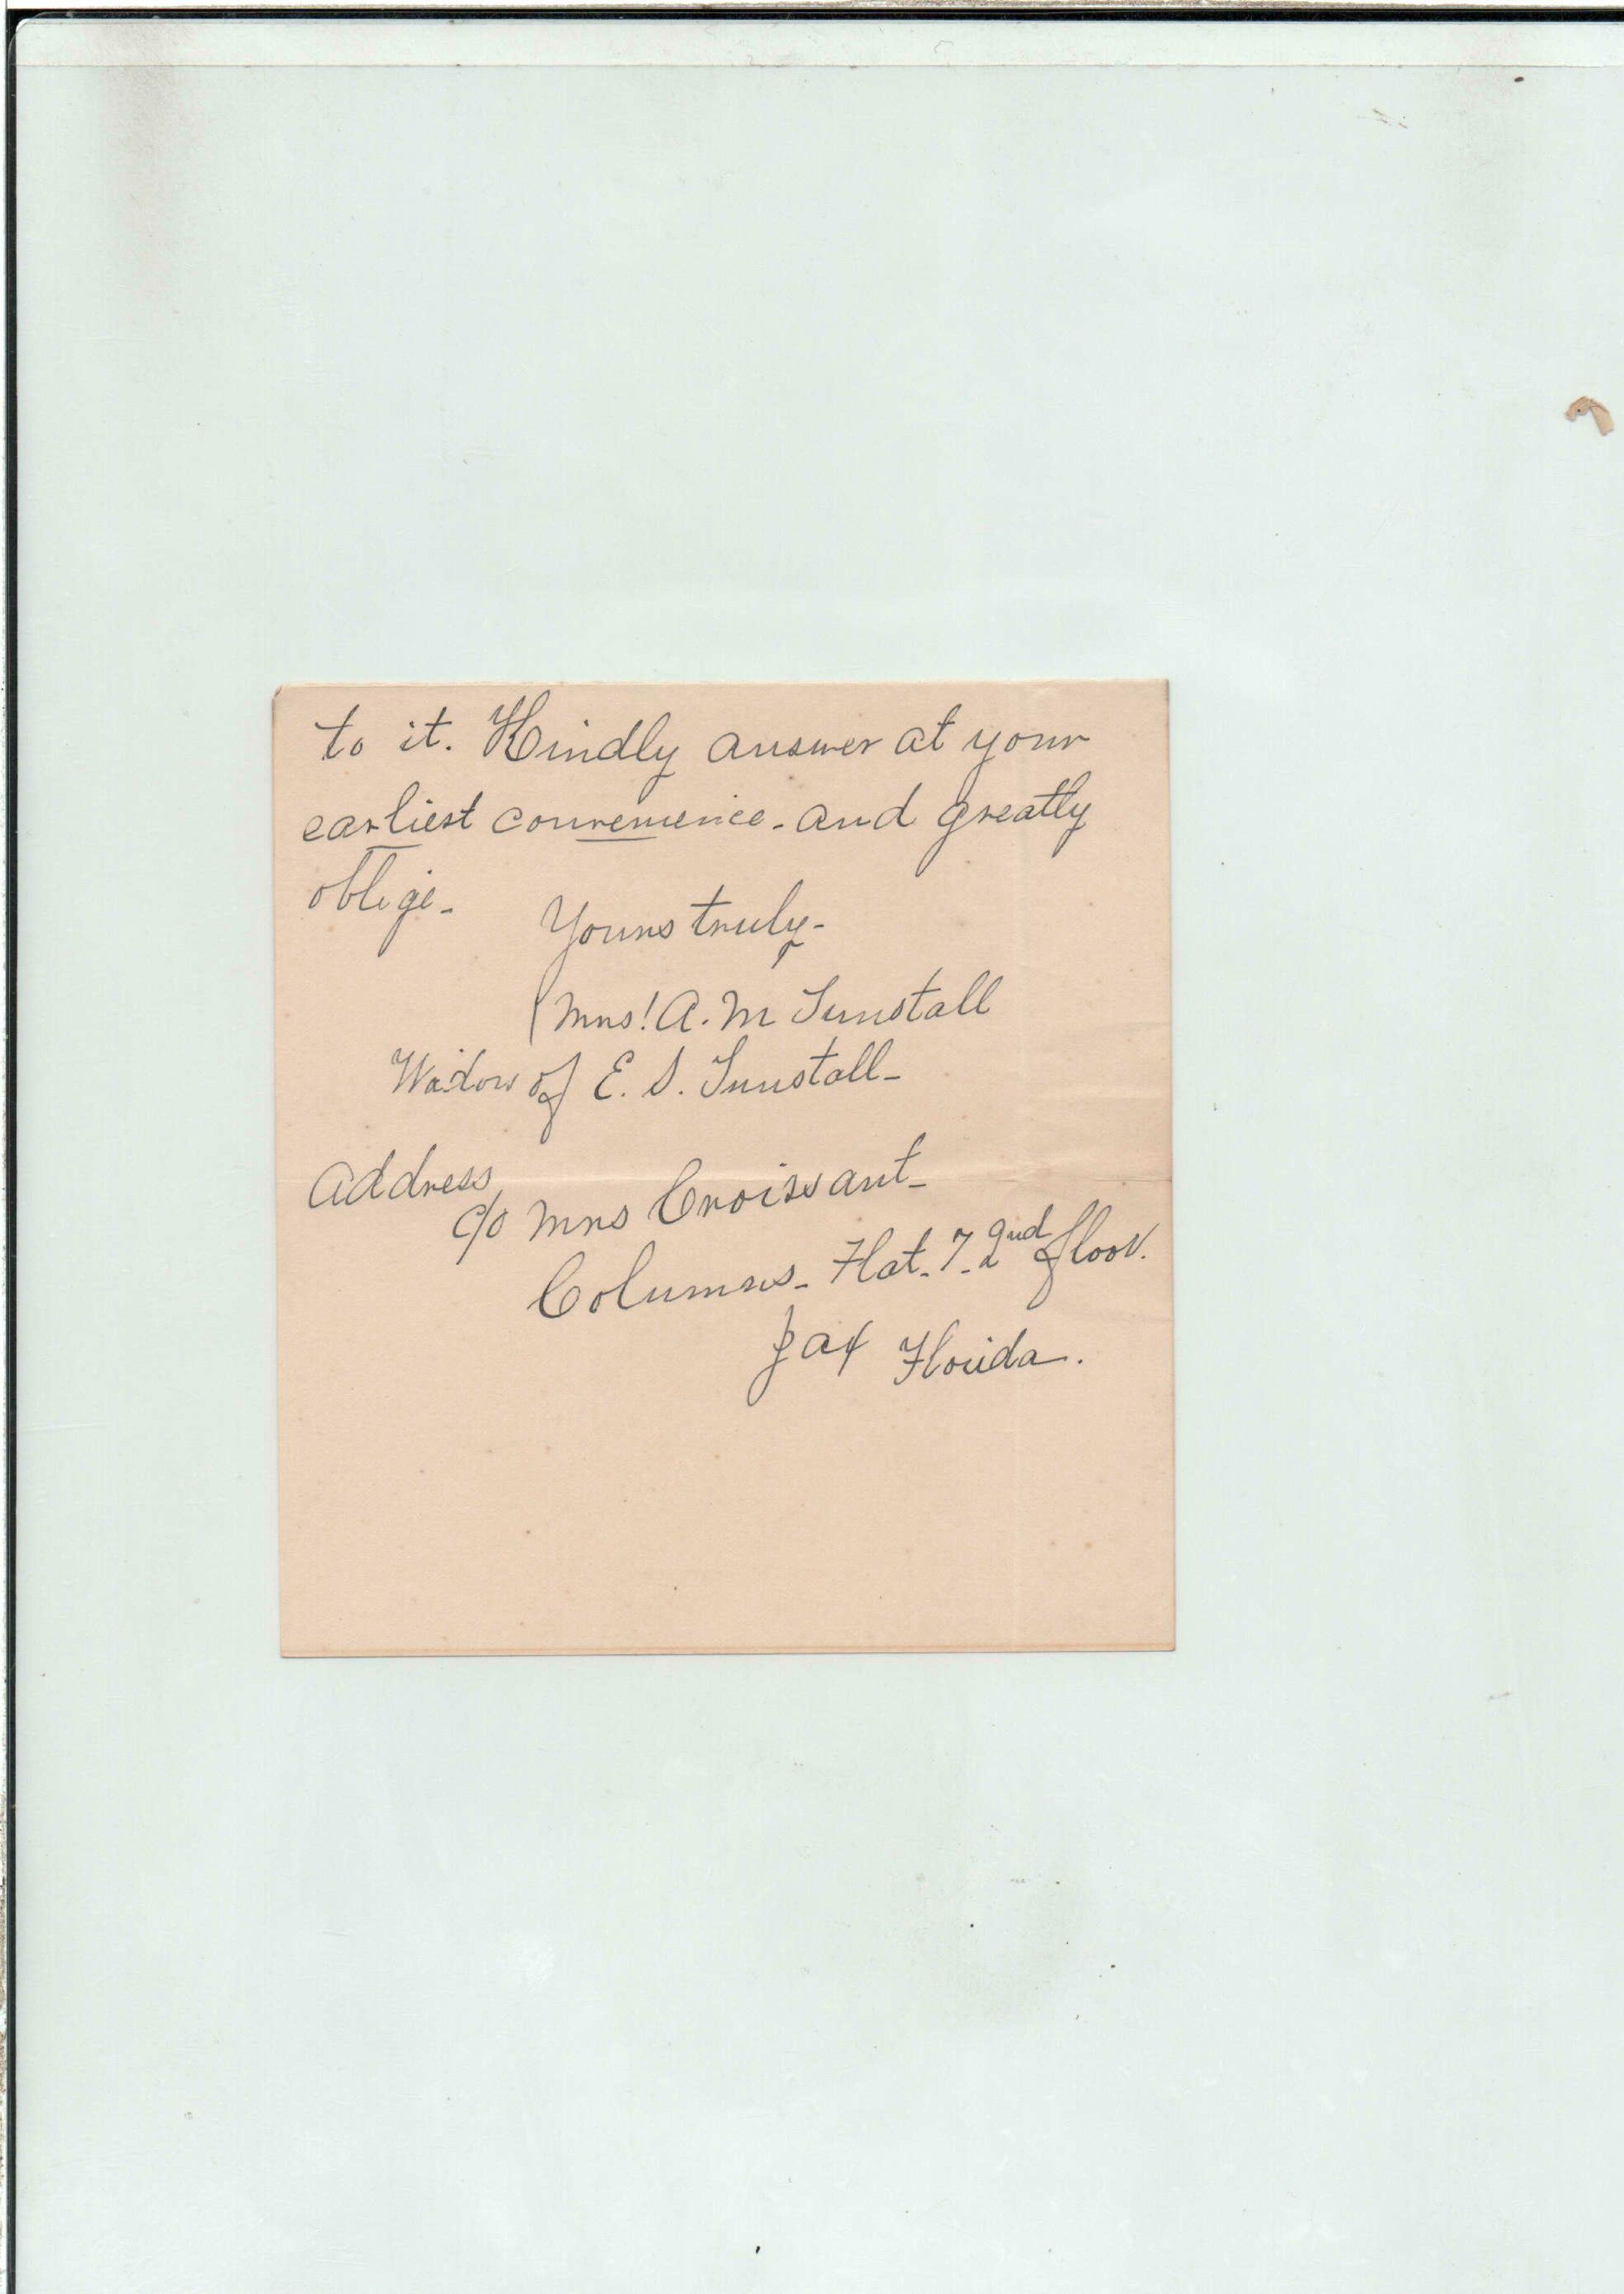 to it. Kindly answer at your
earliest convenience - and greatly
oblige -
Yours truly -
(Mrs! A. M Tunstall
Widow of E. S. Tunstall -
Address
c/o Mrs Croissant -
Flat - 7 - 2nd floor.
Jax Florida.